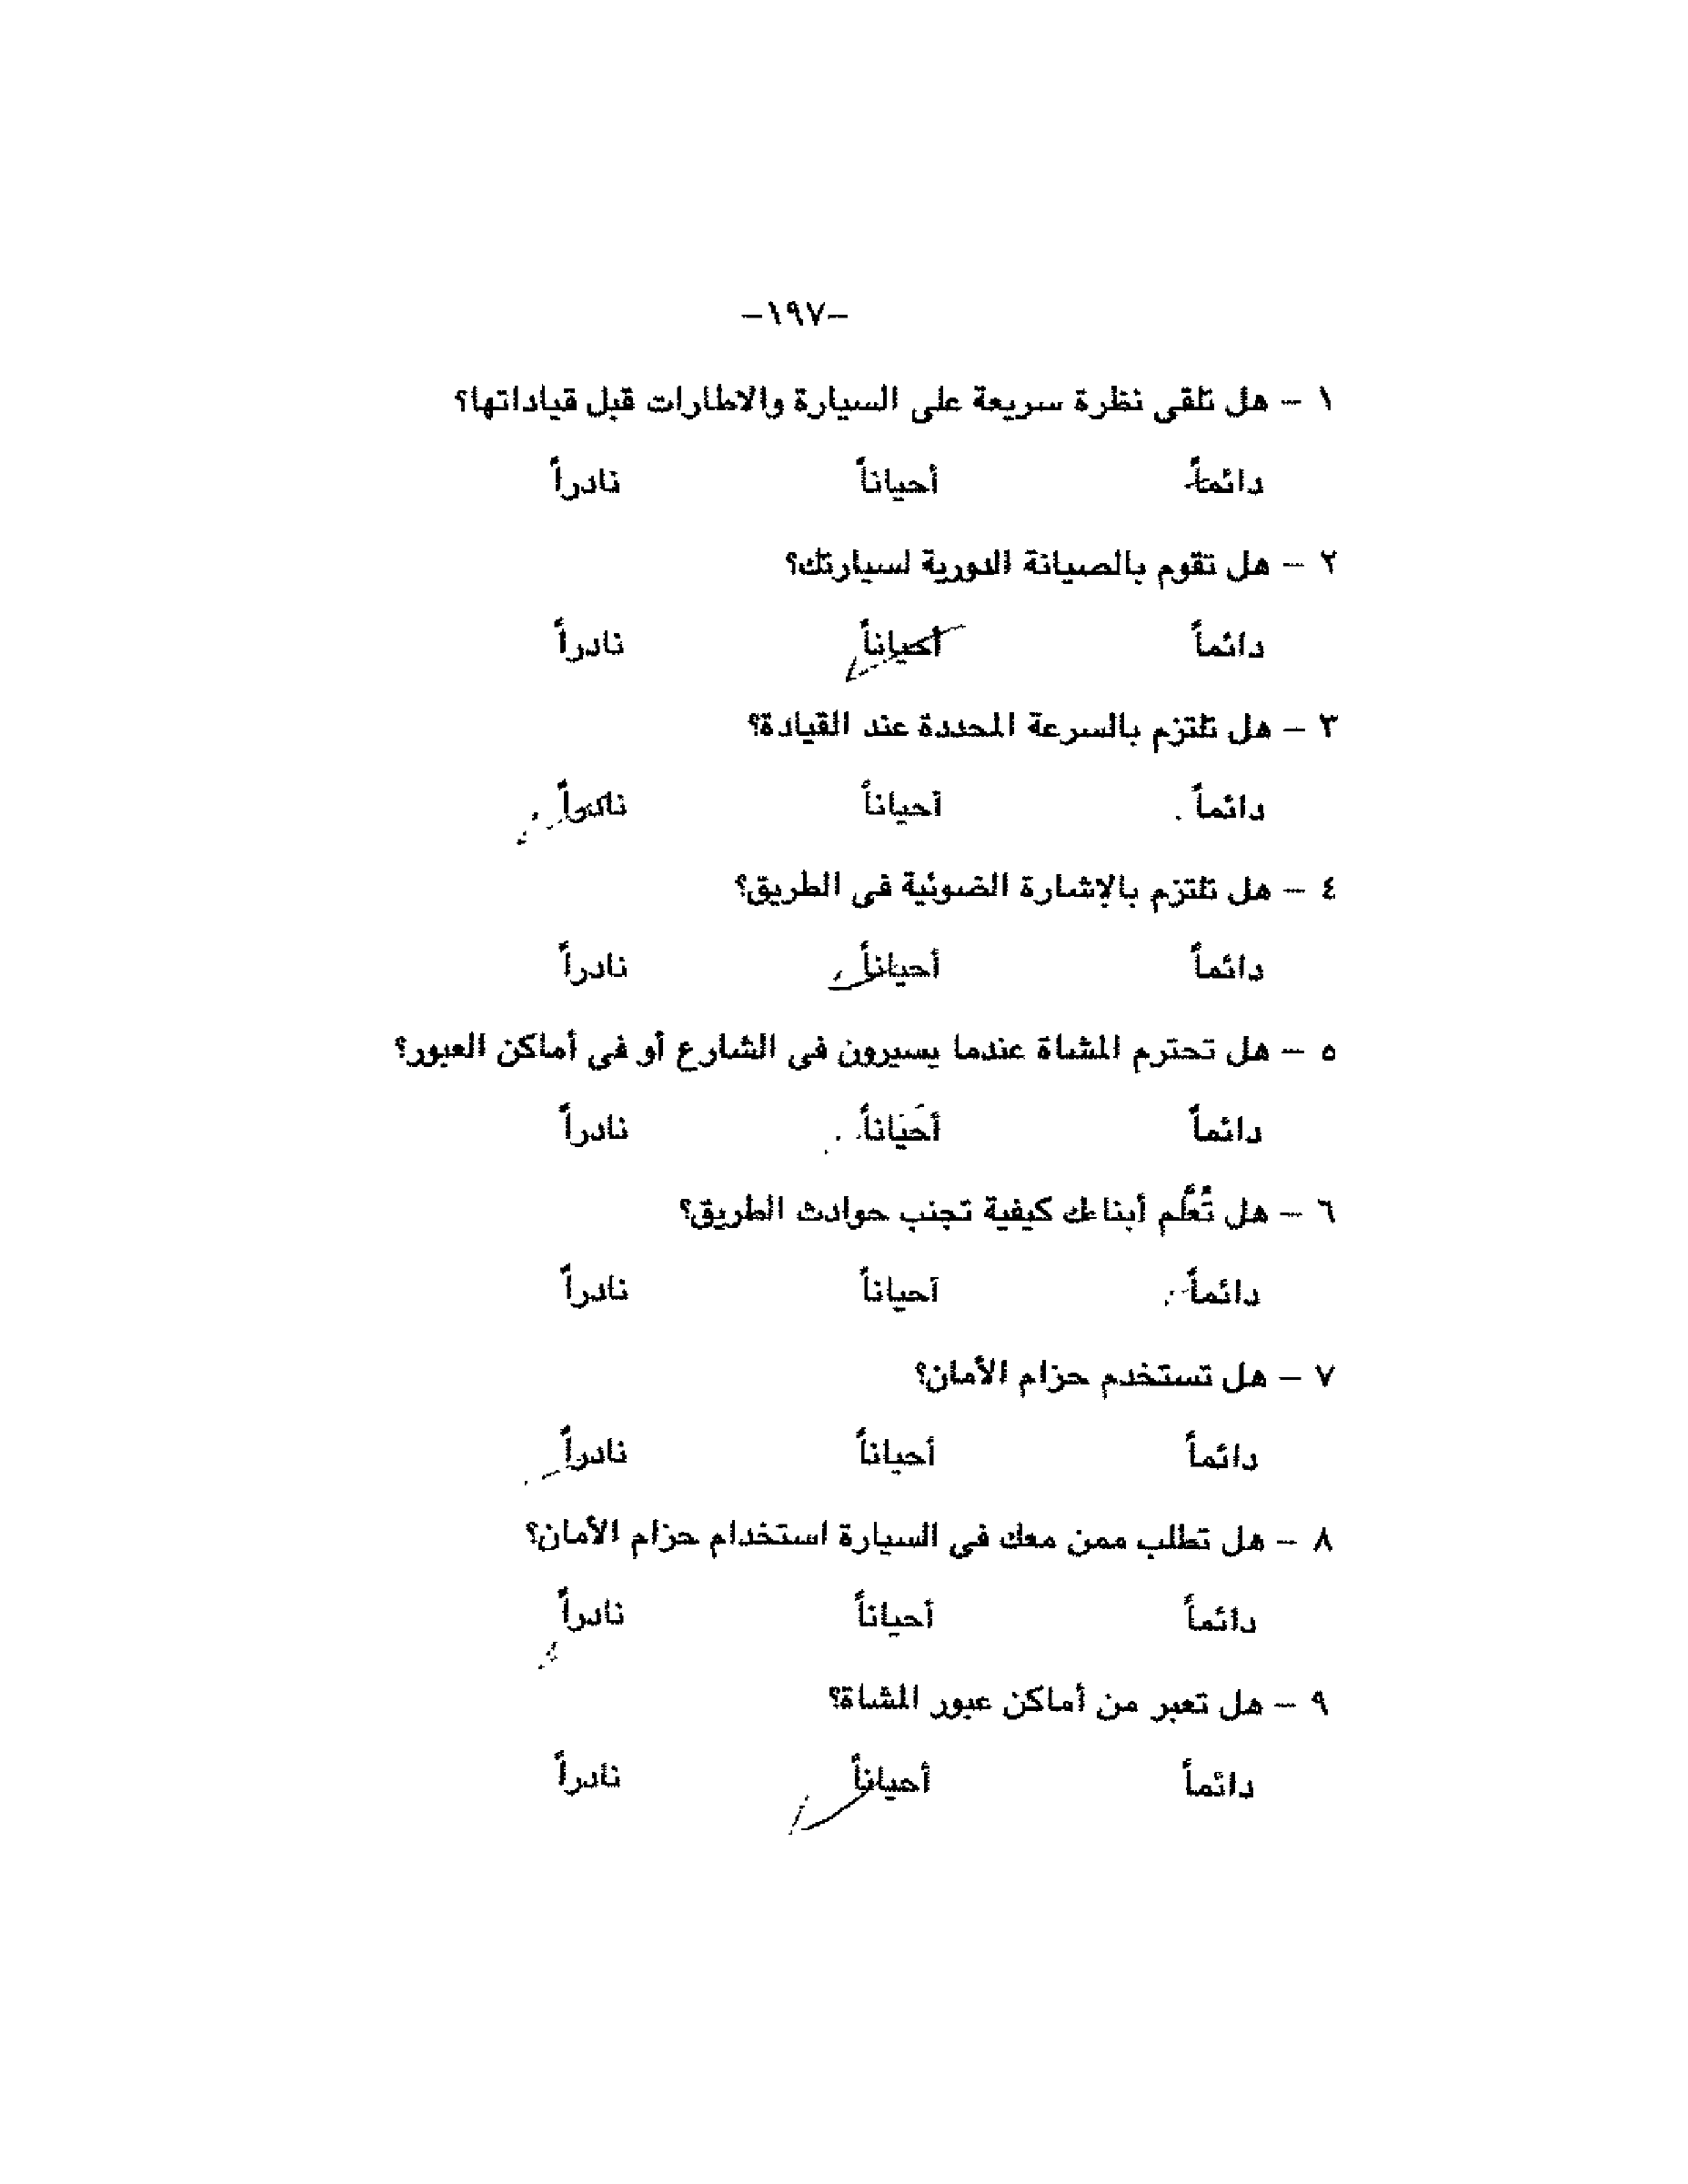 -١٩٧-
١ - هل تلقى نظرة سريعة على السيارة والاطارات قبل قياداتها؟
دائماً أحياناً نادراً
٢ - هل تقوم بالصيانة الدورية لسيارتك؟
دائماً أحياناً نادراً
٣ - هل تلتزم بالسرعة المحددة عند القيادة؟
دائماً أحياناً نادراً
٤ - هل تلتزم بالإشارة الضوئية فى الطريق؟
دائماً أحياناً نادراً
٥ - هل تحترم المشاة عندما يسيرون فى الشارع أو فى أماكن العبور؟
دائماً أحياناً نادراً
٦ - هل تُعَلَّم أبناءك كيفية تجنب حوادث الطريق؟
دائماً أحياناً نادراً
٧ - هل تستخدم حزام الأمان؟
دائماً أحياناً نادراً
٨ - هل تطلب ممن معك فى السيارة استخدام حزام الأمان؟
دائماً أحياناً نادراً
٩ - هل تعبر من أماكن عبور المشاة؟
دائماً أحياناً نادراً